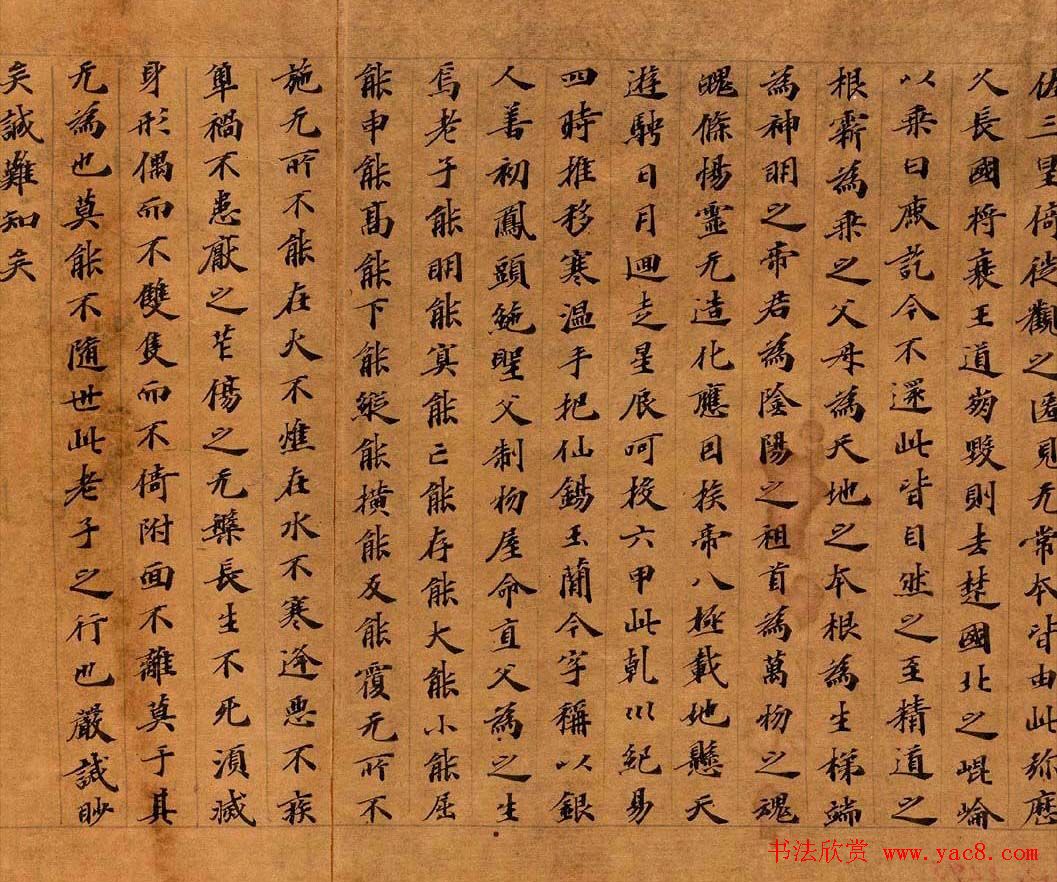 佐三聖倚徙觀之匿見无常本皆由此弥歷
久長國將衰王道崩毀則去楚國北之崐崘
以乗白鹿訖今不還此皆自然之至精道之
根霸為乗之父母為天地之本根為生梯端
為神明之帝君為陰陽之祖首為萬物之魂
魄條暢靈无造化應因挨帝八極載地懸天
遊騁日月迴走星辰呵投六甲此乹巛紀易
四時推移寒温手把仙錫玉蕳今字稱以銀
人善初鳳頭絁聖父制物屋命直父為之生
焉老子能明能冥能亡能存能大能小能屈
能申能髙能下能縱能横能反能覆无所不
施无所不能在火不燋在水不寒逢悪不疾
單禍不患厭之苦傷之无槷長生不死湏滅
身形偶而不雙隻而不倚附面不離莫于其
无為也莫能不隨世此老子之行也嚴誡眇
矣誠難知矣
书法欣赏 www.yac8.com